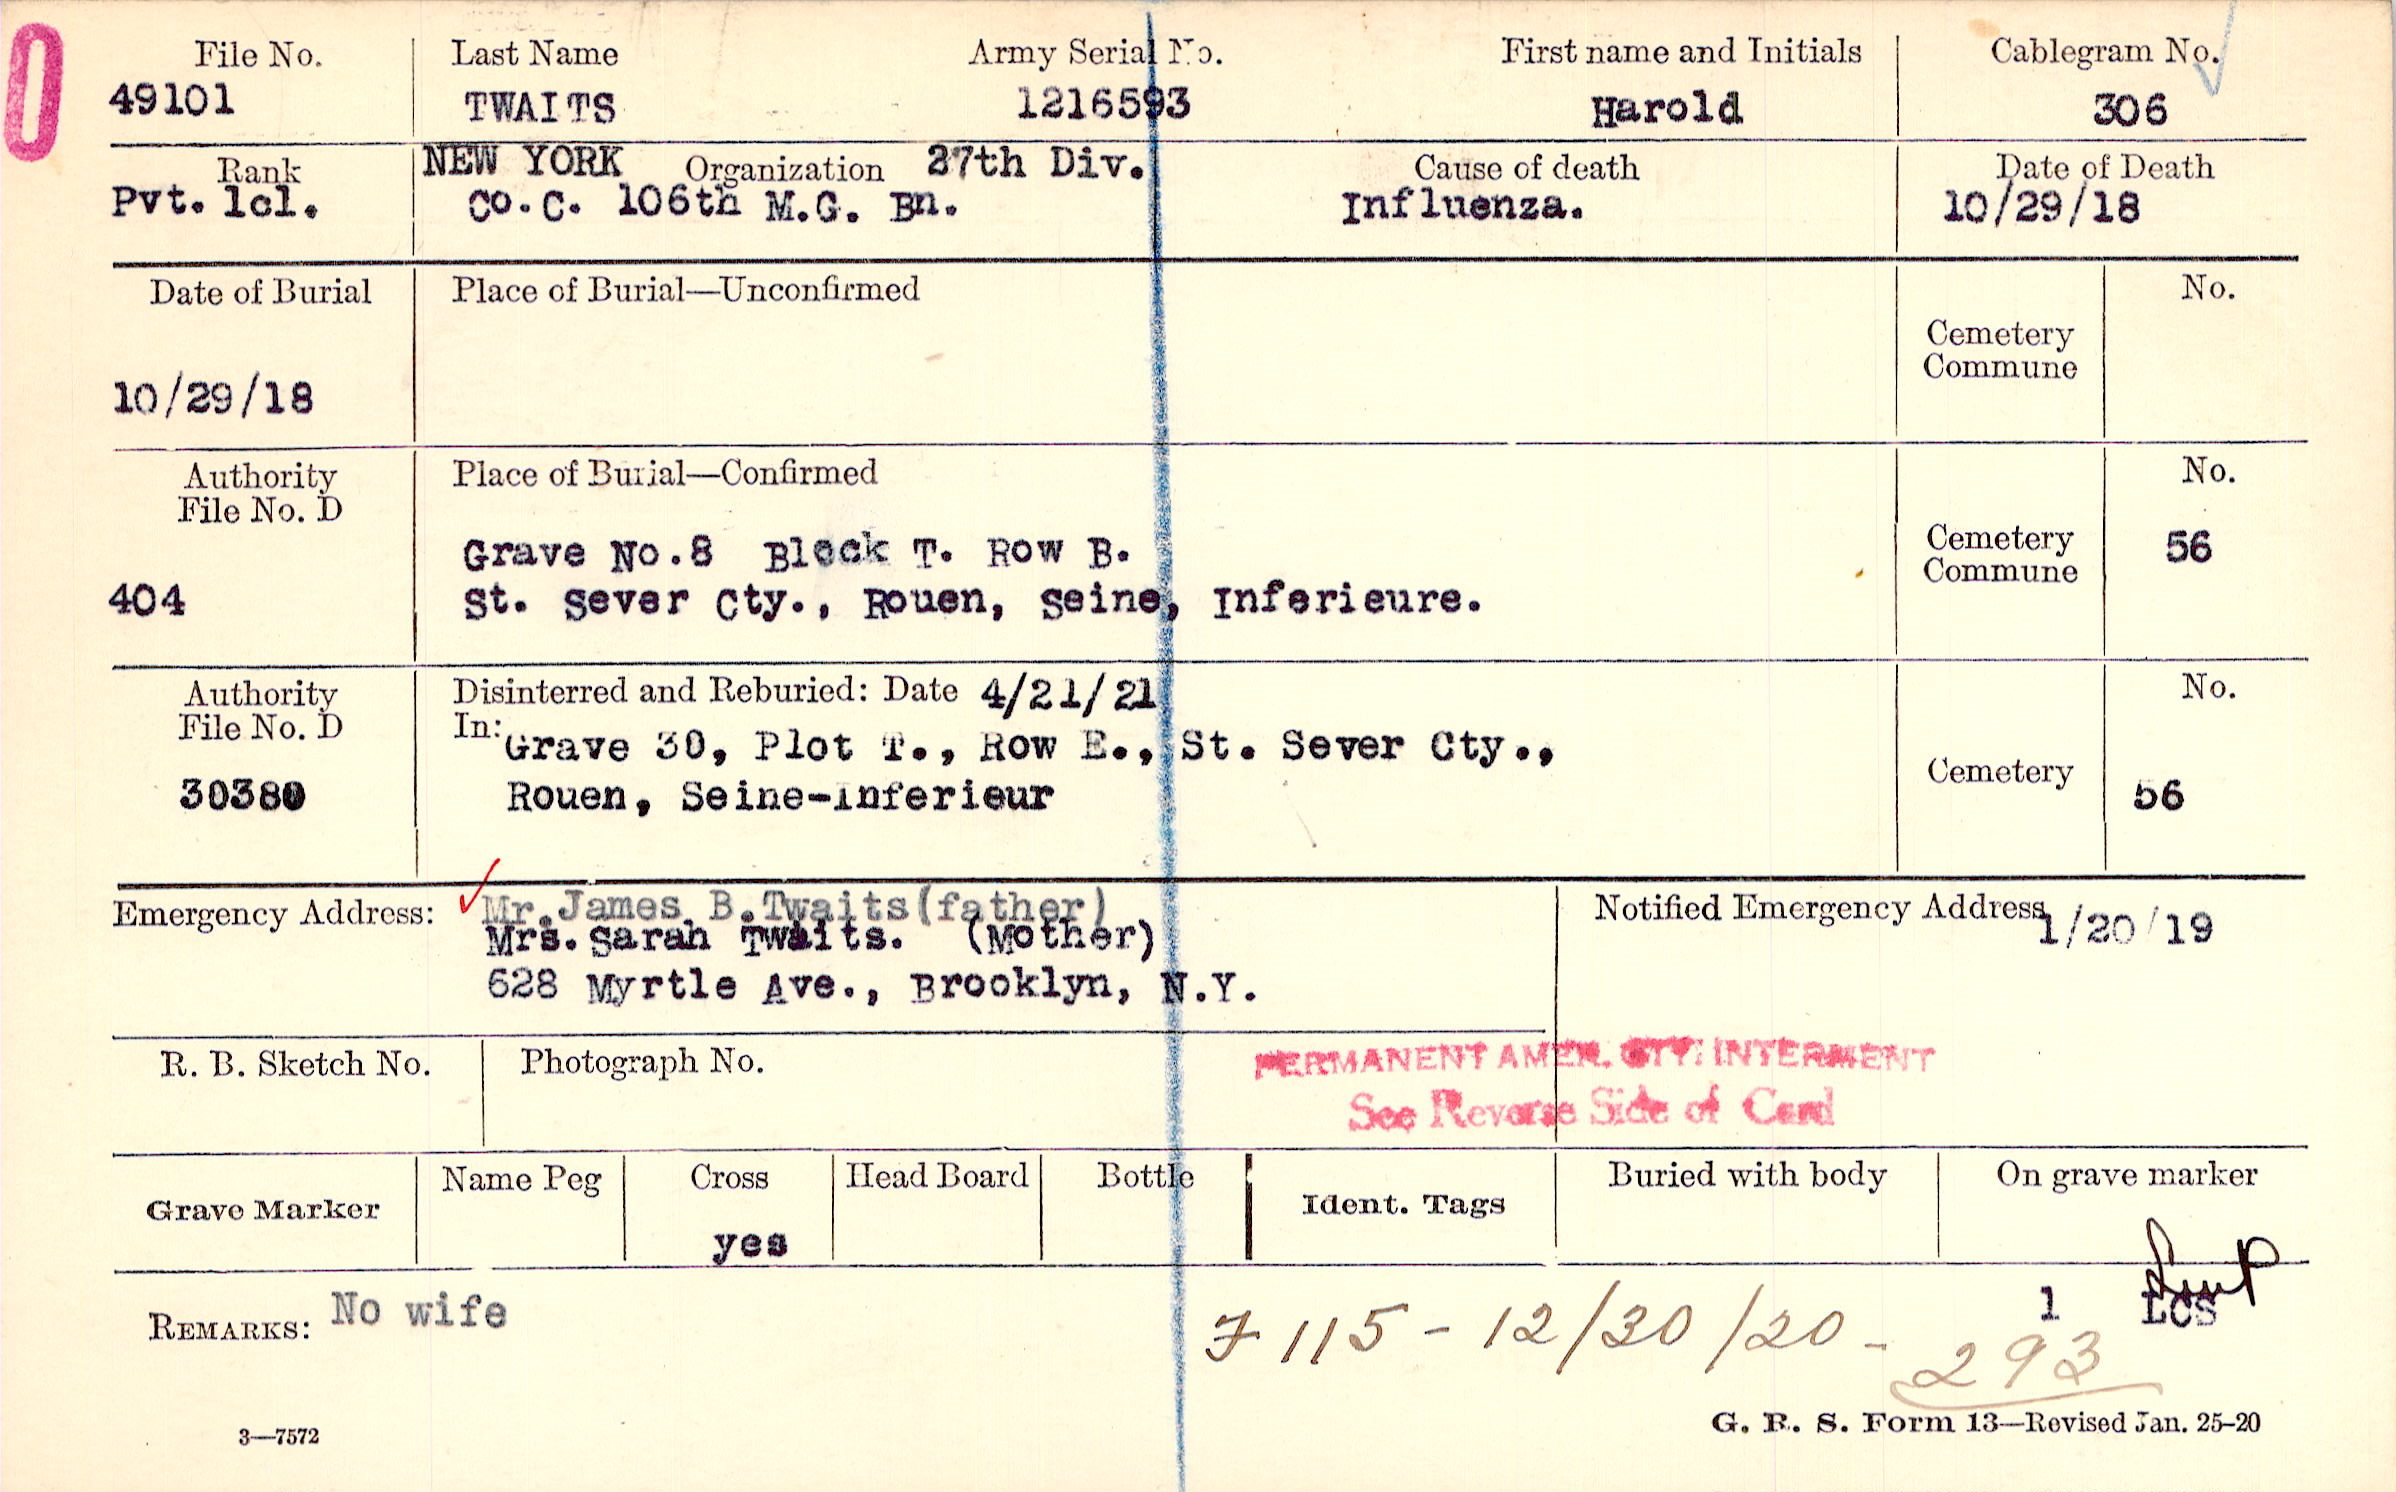 File No. Last Name Army Serial No. First name and Initials Cablegram No.
49101 TWAITS 1216593 Harold 306
Rank NEW YORK Organization 27th Div. Cause of death Date of Death
Pvt. 1cl. Co.C. 106th M.G. Bn. Influenza. 10/29/18
Date of Burial Place of Burial—Unconfirmed No.
Cemetery
Commune
10/29/18
Authority Place of Burial—Confirmed No.
File No. D
Grave No.8 Block T. Row B. Cemetery 56
Commune
404 St. Sever Cty., Rouen, Seine, Inferieure.
Authority Disinterred and Reburied: Date 4/21/21 No.
File No. D In: Grave 30, Plot T., Row E., St. Sever Cty.,
30380 Rouen, Seine-Inferieur Cemetery 56
Emergency Address: Mr.James B.Twaits(father) Notified Emergency Address 1/20/19
Mrs.Sarah Twaits. (Mother)
628 Myrtle Ave., Brooklyn, N.Y.
R. B. Sketch No. Photograph No. PERMANENT AMER. CTY. INTERMENT
See Reverse Side of Card
Grave Marker Name Peg Cross Head Board Bottle Ident. Tags Buried with body On grave marker
yes
REMARKS: No wife 1 LCS
F 115 - 12/30/20 - 293
3—7572 G. R. S. Form 13—Revised Jan. 25-20